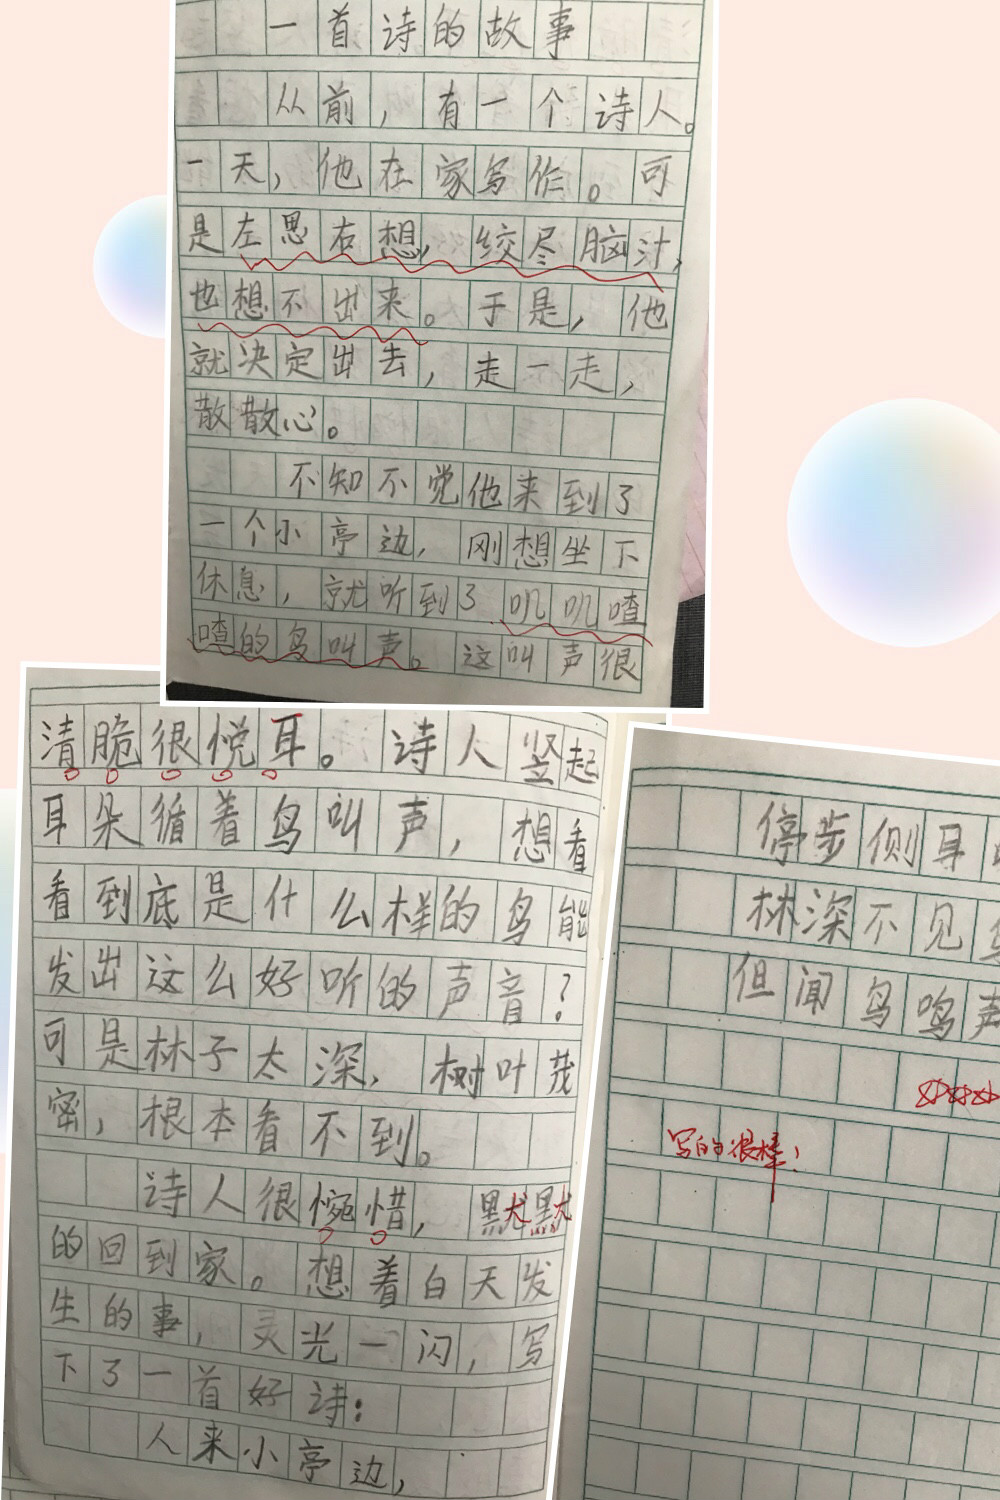 一首诗的故事
从前，有一个诗人。
一天，他在家写作。可
是左思右想，绞尽脑汁，
也想不出来。于是，他
就决定出去，走一走，
散散心。
不知不觉他来到了
一个小亭边，刚想坐下
休息，就听到了叽叽喳
喳的鸟叫声。这叫声很
清脆很悦耳。诗人竖起
耳朵循着鸟叫声，想看
看到底是什么样的鸟能
发出这么好听的声音？
可是林子太深，树叶茂
密，根本看不到。
诗人很惋惜，默默
的回到家。想着白天发
生的事，灵光一闪，写
下了一首好诗：
人来小亭边，
停步侧耳
林深不见
但闻鸟鸣声
写的很棒！